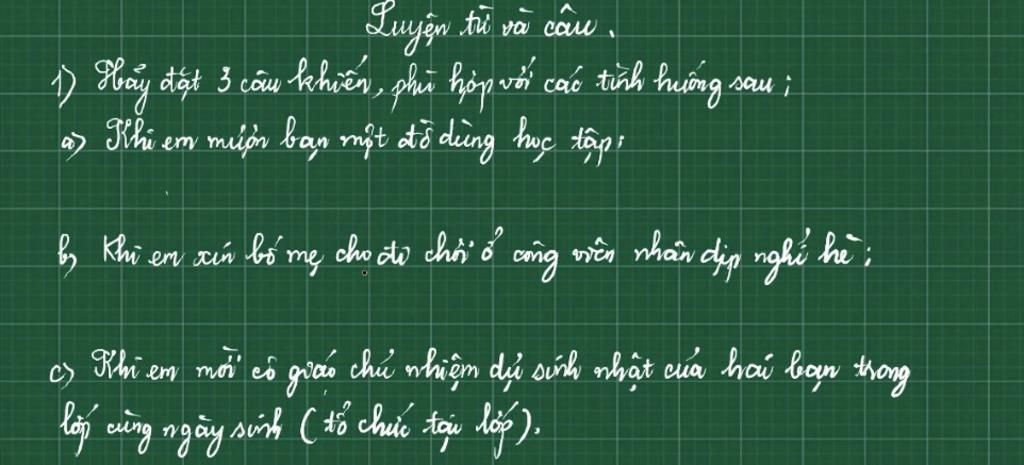 Luyện từ và câu.
1) Hãy đặt 3 câu khiến, phù hợp với các tình huống sau;
a) Khi em mượn bạn một đồ dùng học tập;
b) Khi em xin bố mẹ cho đi chơi ở công viên nhân dịp nghỉ hè;
c) Khi em mời cô giáo chủ nhiệm dự sinh nhật của hai bạn trong
lớp cùng ngày sinh (tổ chức tại lớp).